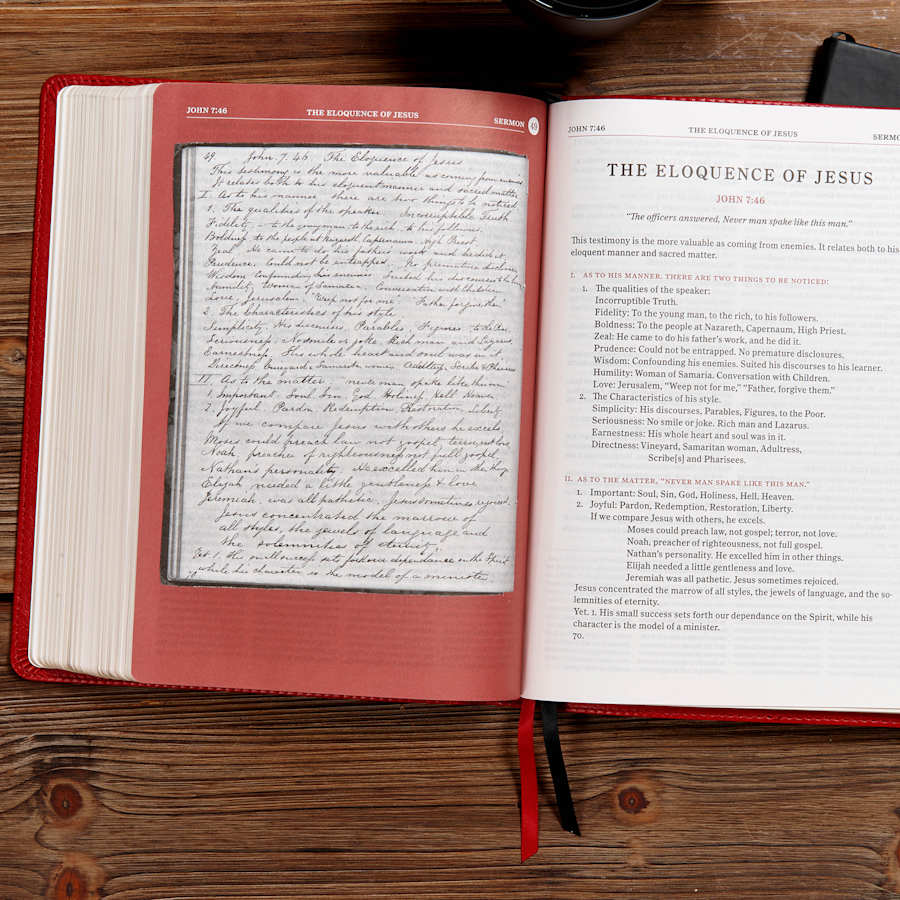 JOHN 7:46 THE ELOQUENCE OF JESUS SERMON 49
49 John. 7. 46. The Eloquence of Jesus
This testimony is the more valuable as coming from enemies.
It relates both to his eloquent manner and sacred matter.
I. As to his manner there are two things to be noticed
1. The qualities of the speaker. Incorruptible Truth
Fidelity. – to the young man to the rich to his followers.
Boldness to the people at Nazareth, Capernaum, High Priest.
Zeal He came to do his fathers work and he did it.
Prudence. Could not be entrapped. No premature disclosures
Wisdom Confounding his enemies. Suited his discourses to his
Humility, Woman of Samaria. Conversation with Children.
Love, Jerusalem. "Weep not for me" "Father forgive them"
2. The Characteristics of his style.
Simplicity, His discourses, Parables, Figures to the Poor.
Seriousness. No smile or joke. Rich man and Lazarus.
Earnestness. His whole heart and soul was in it.
Directness Vineyard, Samaritan woman, Adultress, Scribe & Pharisees
II. As to the matter "never man spake like this man."
1. Important. Soul, Sin. God Holiness, Hell Heaven.
2. Joyful. Pardon Redemption, Restoration, Liberty.
If we compare Jesus with others he excels.
Moses could preach law not gospel, terror not love.
Noah, preacher of righteousness, not full gospel.
Nathan's personality. He excelled him in other things
Elijah needed a little gentleness & love
Jeremiah was all pathetic. Jesus sometimes rejoiced.
Jesus concentrated the marrow of
all styles, the jewels of language and
the solemnities of eternity.
Yet 1. His small success sets forth our dependance on the Spirit
while his character is the model of a minister
JOHN 7:46 THE ELOQUENCE OF JESUS SERMO
THE ELOQUENCE OF JESUS
JOHN 7:46
"The officers answered, Never man spake like this man."
This testimony is the more valuable as coming from enemies. It relates both to his
eloquent manner and sacred matter.
I. AS TO HIS MANNER. THERE ARE TWO THINGS TO BE NOTICED:
1. The qualities of the speaker:
Incorruptible Truth.
Fidelity: To the young man, to the rich, to his followers.
Boldness: To the people at Nazareth, Capernaum, High Priest.
Zeal: He came to do his father's work, and he did it.
Prudence: Could not be entrapped. No premature disclosures.
Wisdom: Confounding his enemies. Suited his discourses to his learner.
Humility: Woman of Samaria. Conversation with Children.
Love: Jerusalem, "Weep not for me," "Father, forgive them."
2. The Characteristics of his style.
Simplicity: His discourses, Parables, Figures, to the Poor.
Seriousness: No smile or joke. Rich man and Lazarus.
Earnestness: His whole heart and soul was in it.
Directness: Vineyard, Samaritan woman, Adultress,
Scribe[s] and Pharisees.
II. AS TO THE MATTER, "NEVER MAN SPAKE LIKE THIS MAN."
1. Important: Soul, Sin, God, Holiness, Hell, Heaven.
2. Joyful: Pardon, Redemption, Restoration, Liberty.
If we compare Jesus with others, he excels.
Moses could preach law, not gospel; terror, not love.
Noah, preacher of righteousness, not full gospel.
Nathan's personality. He excelled him in other things.
Elijah needed a little gentleness and love.
Jeremiah was all pathetic. Jesus sometimes rejoiced.
Jesus concentrated the marrow of all styles, the jewels of language, and the so-
lemnities of eternity.
Yet. 1. His small success sets forth our dependance on the Spirit, while his
character is the model of a minister.
70.